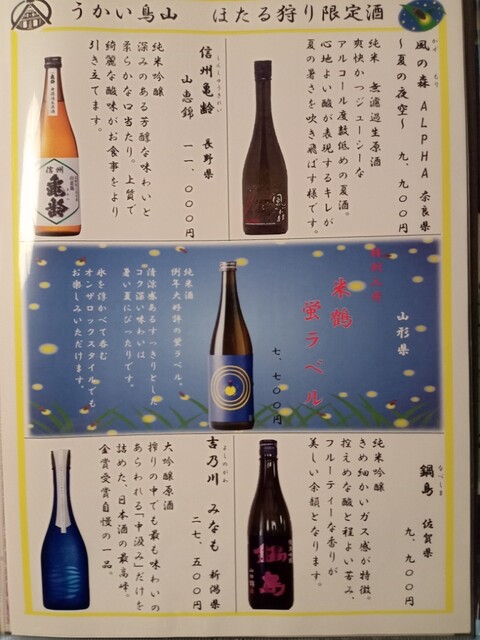 うかい鳥山　ほたる狩り限定酒
風の森 ALPHA 奈良県
かぜ もり
～夏の夜空～ 九、九〇〇円
純米 無濾過生原酒
爽快かつジューシーな
アルコール度数低めの夏酒。
心地よい酸が表現するキレが
夏の暑さを吹き飛ばす様です。
信州亀齢 長野県
しんしゅうきれい
山恵錦 一一、〇〇〇円
純米吟醸
深みのある芳醇な味わいと
柔らかな口当たり。上質で
綺麗な酸味がお食事をより
引き立てます。
信州
亀齢
米鶴
蛍ラベル
山形県
七、七〇〇円
純米酒
例年大好評の蛍ラベル。
清涼感ありすっきりとした
コク深い味わいは
暑い夏にぴったりです。
氷を浮かべて呑む
オンザロックスタイルでも
お楽しみいただけます。
鍋島 佐賀県
なべしま
九、九〇〇円
純米吟醸
きめ細かいガス感が特徴。
控えめな酸と程よい苦み、
フルーティーな香りが
美しい余韻となります。
吉乃川 みなも 新潟県
よしのがわ
二七、五〇〇円
大吟醸原酒
搾りの中でも最も味わいの
あらわれる「中汲み」だけを
詰めた、日本酒の最高峰。
金賞受賞自慢の一品。